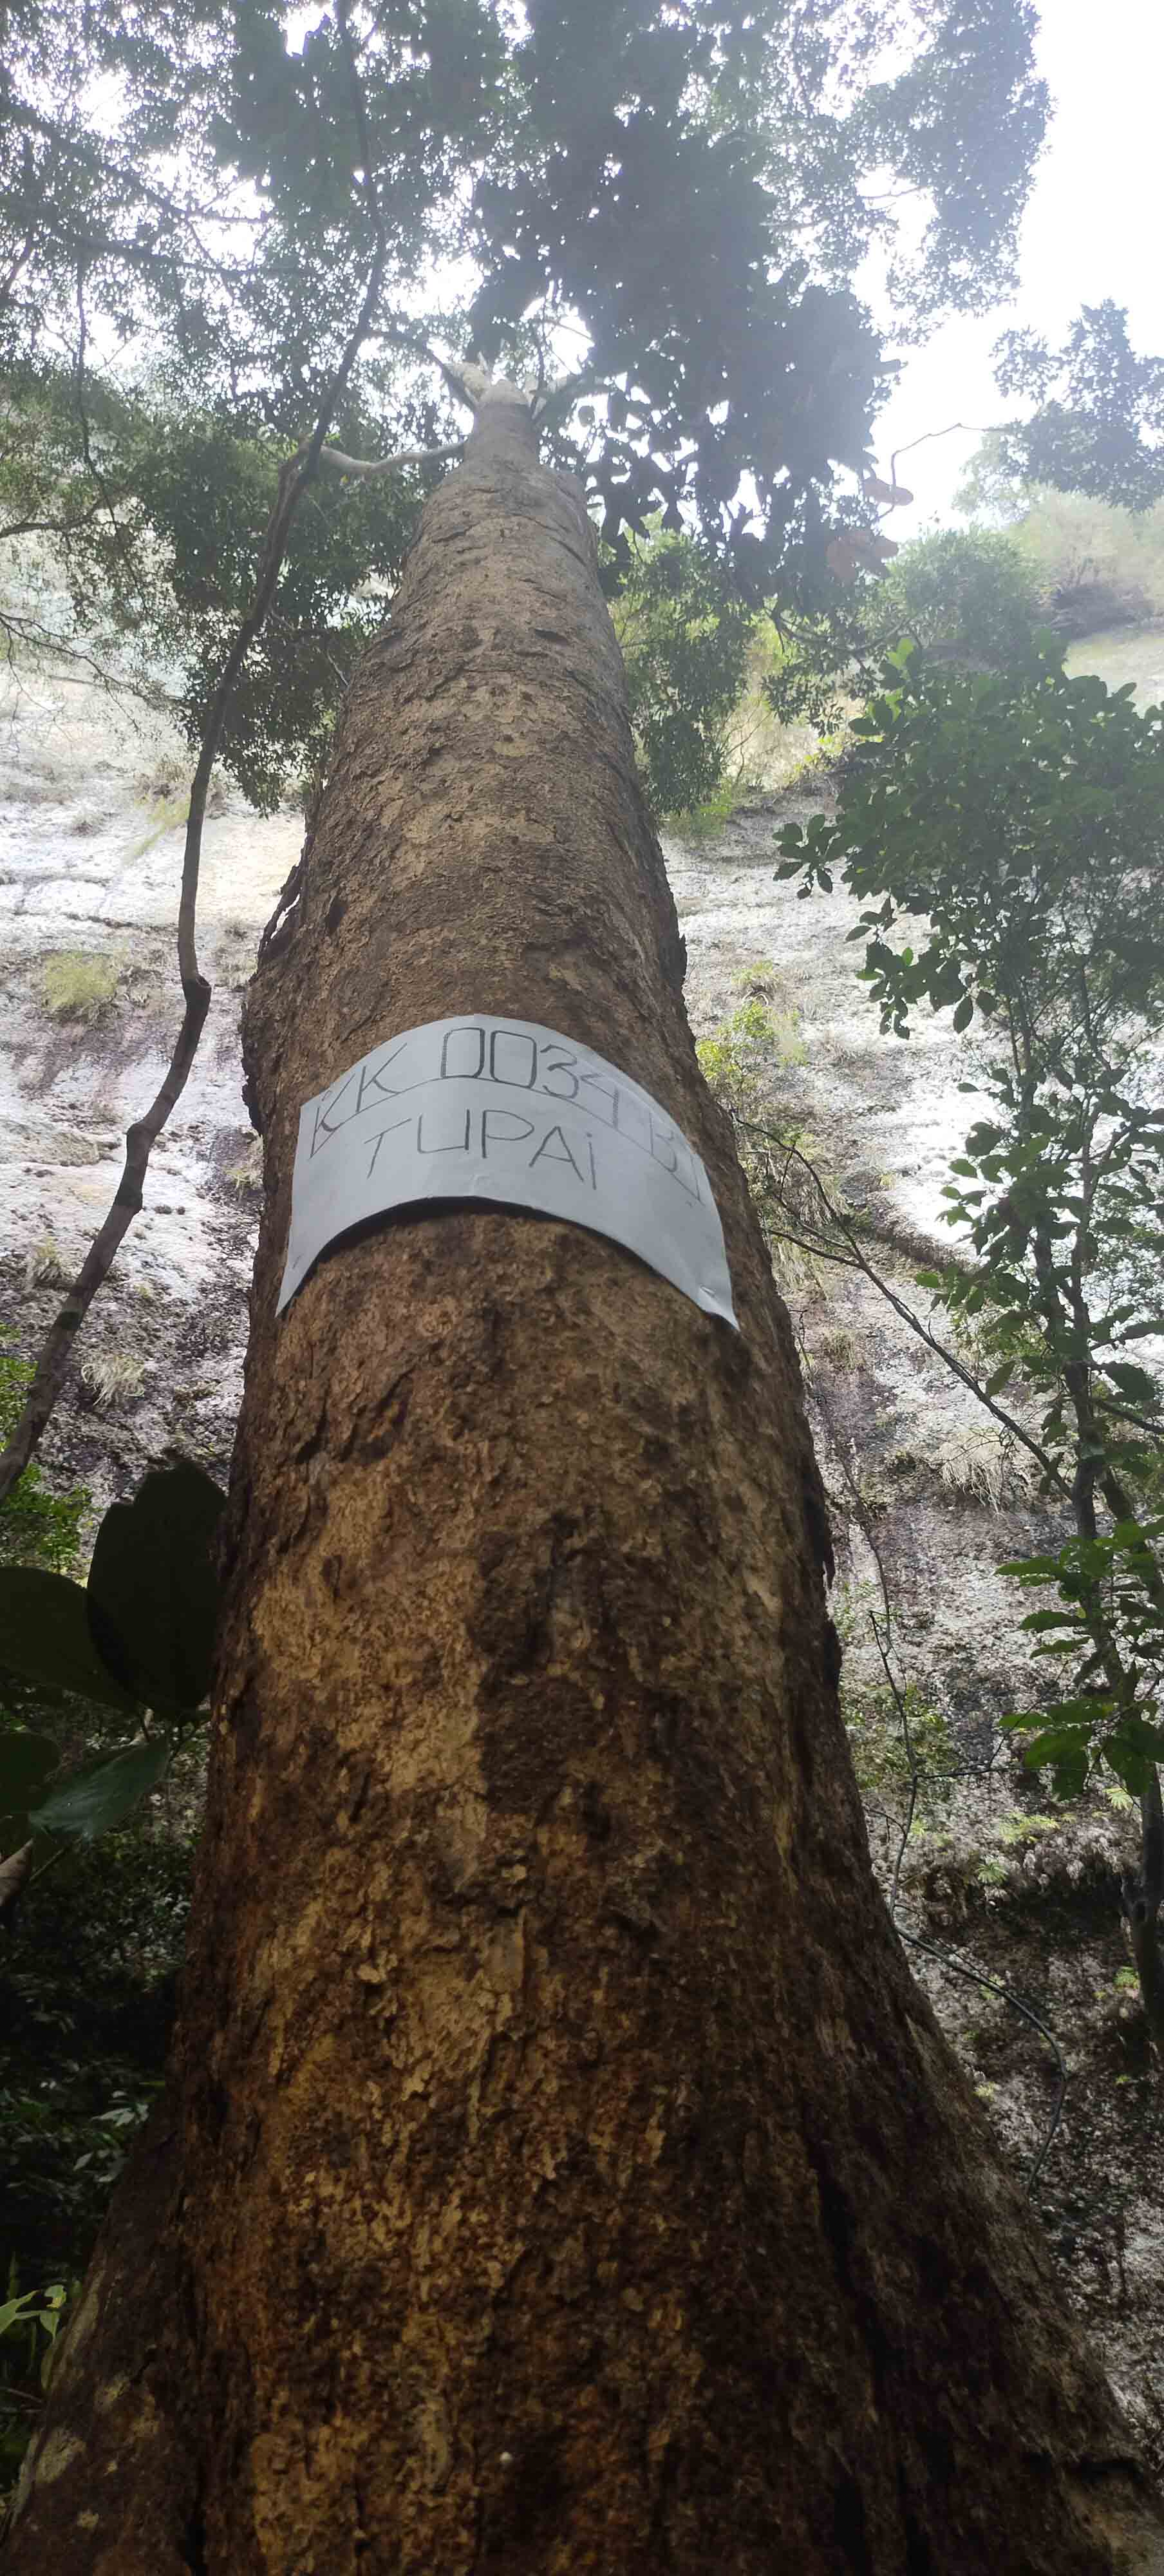 KK 0034 BJ
TUPAi